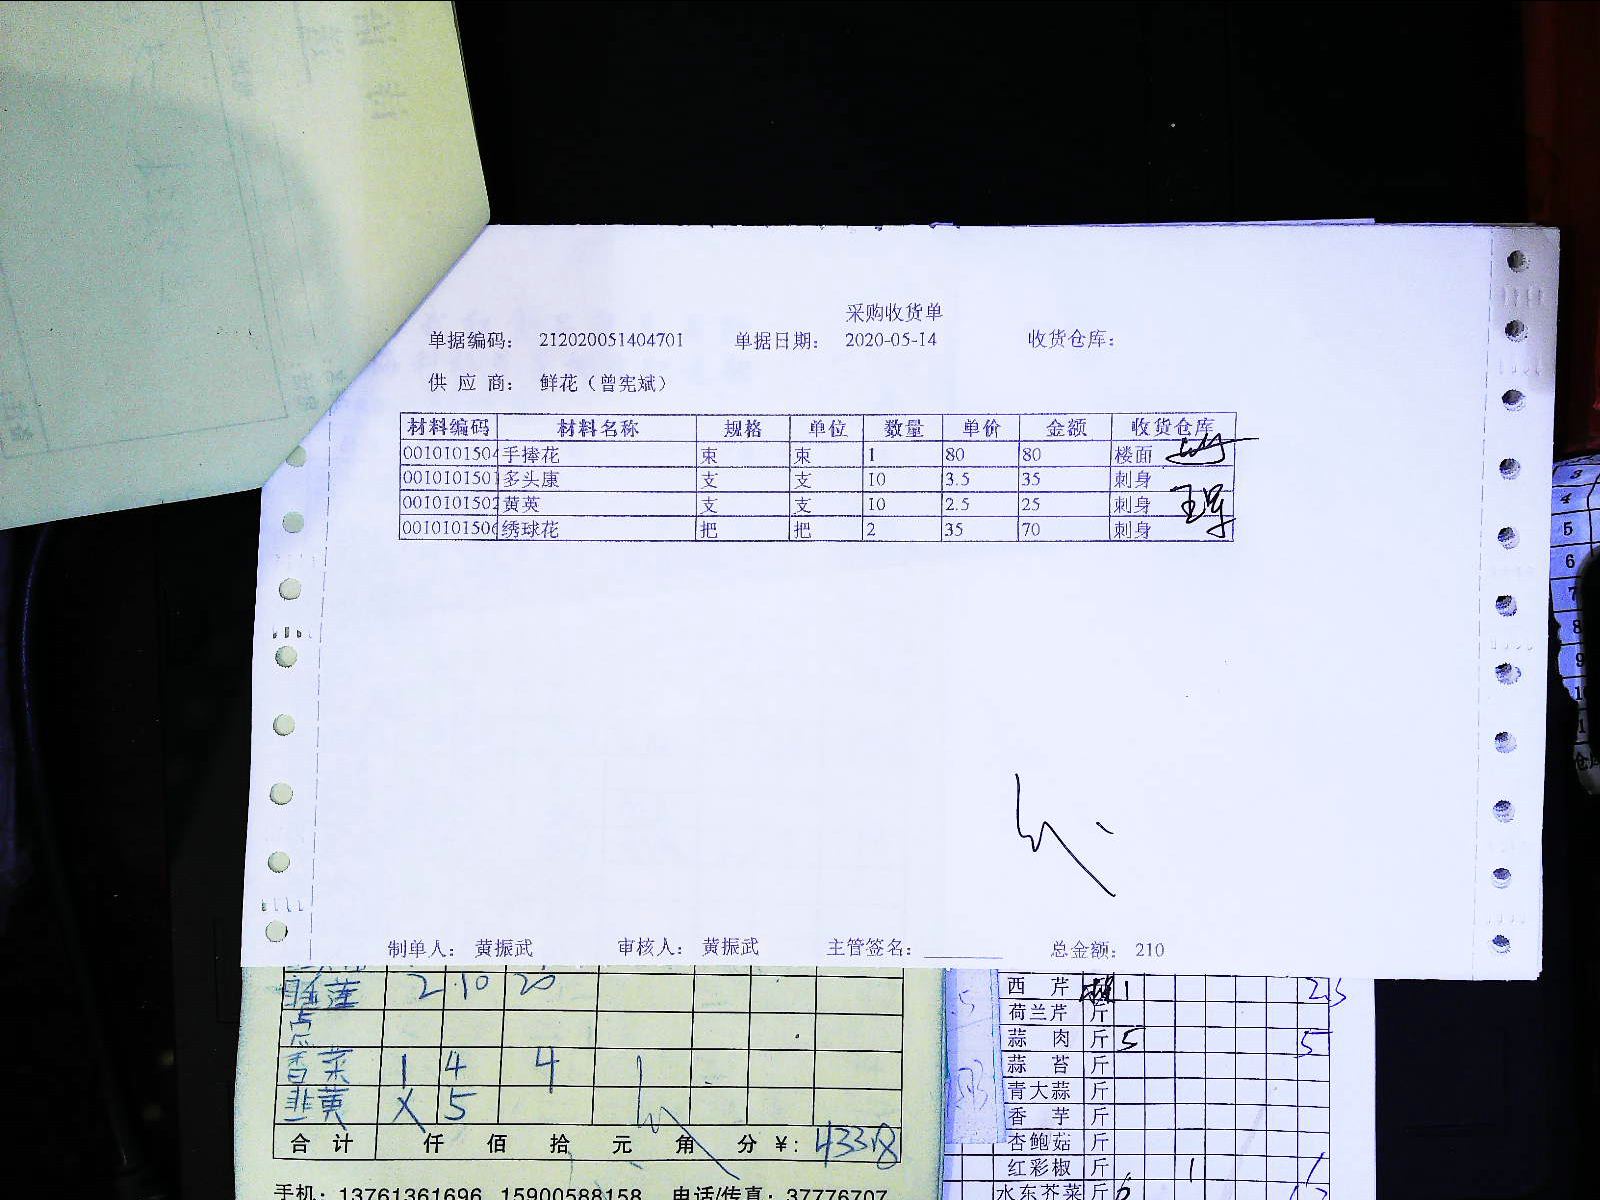 采购收货单
单据编码： 212020051404701 单据日期： 2020-05-14 收货仓库：
供 应 商： 鲜花（曾宪斌）
材料编码 材料名称 规格 单位 数量 单价 金额 收货仓库
0010101504 手捧花 束 束 1 80 80 楼面
0010101501 多头康 支 支 10 3.5 35 刺身
0010101502 黄英 支 支 10 2.5 25 刺身
0010101506 绣球花 把 把 2 35 70 刺身
制单人： 黄振武 审核人： 黄振武 主管签名： 总金额： 210
2 10 20
香菜 1 4 4
韭黄 X 5
合 计 仟 佰 拾 元 角 分 ¥：
手机：13761361696 15900588158 电话/传真：37776707
西 芹 1
荷兰芹 斤
蒜 肉 斤 5 5
蒜 苔 斤
青大蒜 斤
香 芋 斤
杏鲍菇 斤
红彩椒 斤 1 1
水东芥菜 斤
3
4
5
6
7
8
9